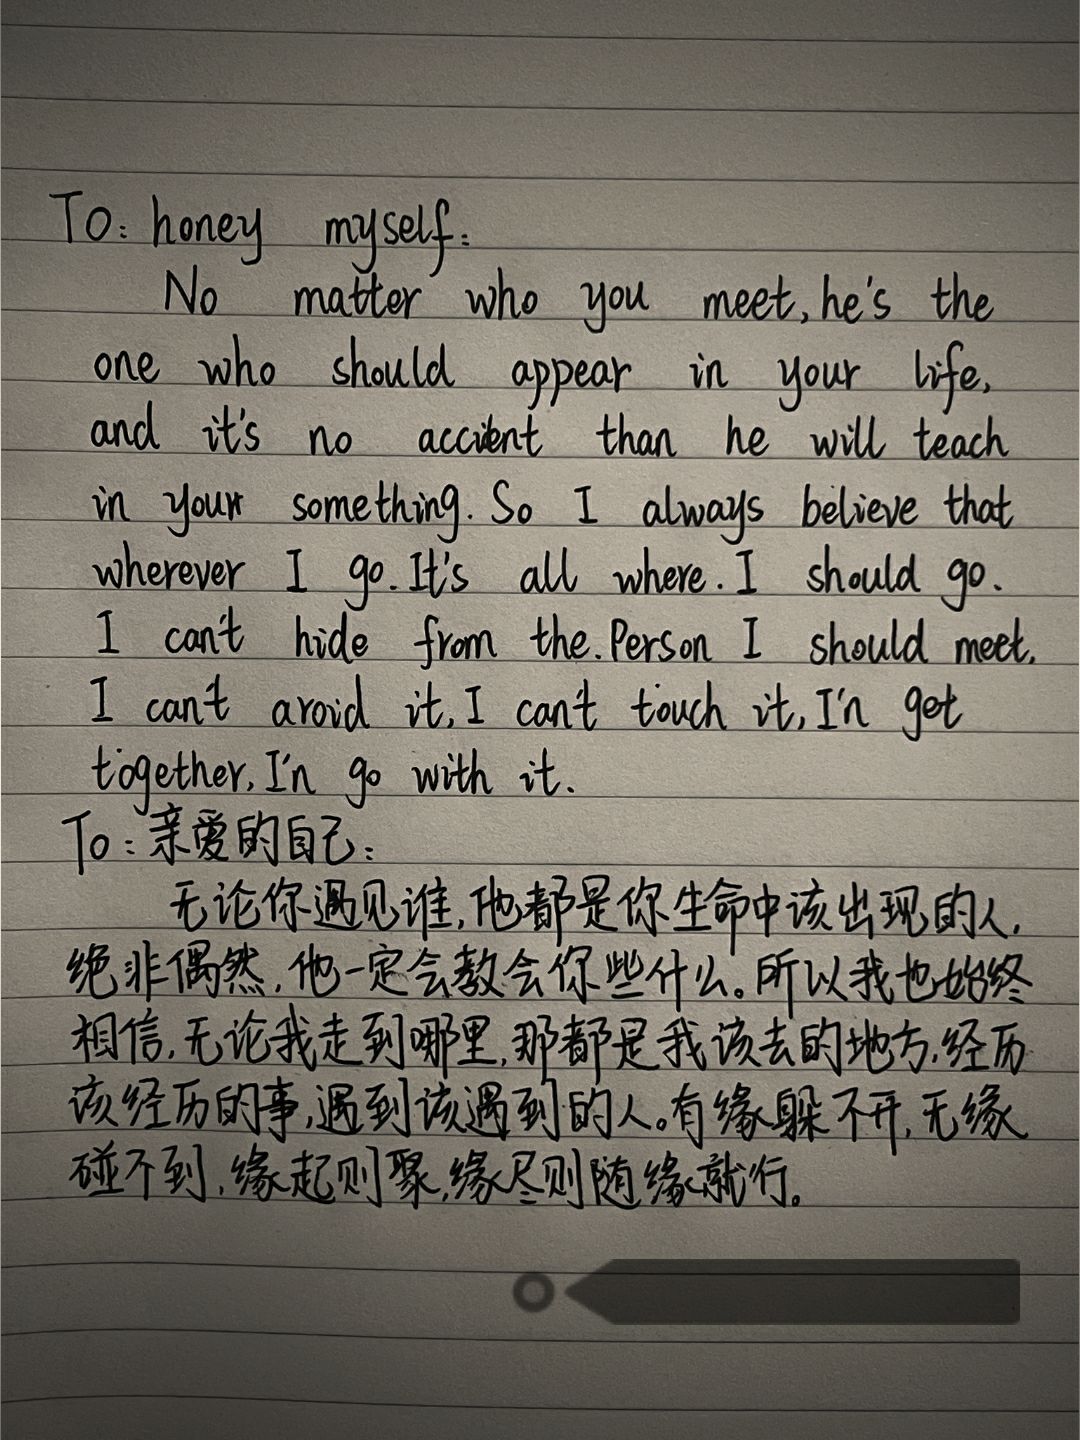 To: honey myself:
No matter who you meet, he's the
one who should appear in your life,
and it's no accident than he will teach
in your something. So I always believe that
wherever I go. It's all where. I should go.
I can't hide from the. Person I should meet.
I can't aroid it, I can't touch it, I'n get
together, I'n go with it.
To: 亲爱的自己:
无论你遇见谁,他都是你生命中该出现的人,
绝非偶然,他一定会教会你些什么。所以我也始终
相信,无论我走到哪里,那都是我该去的地方,经历
该经历的事,遇到该遇到的人。有缘躲不开,无缘
碰不到,缘起则聚,缘尽则随缘就行。